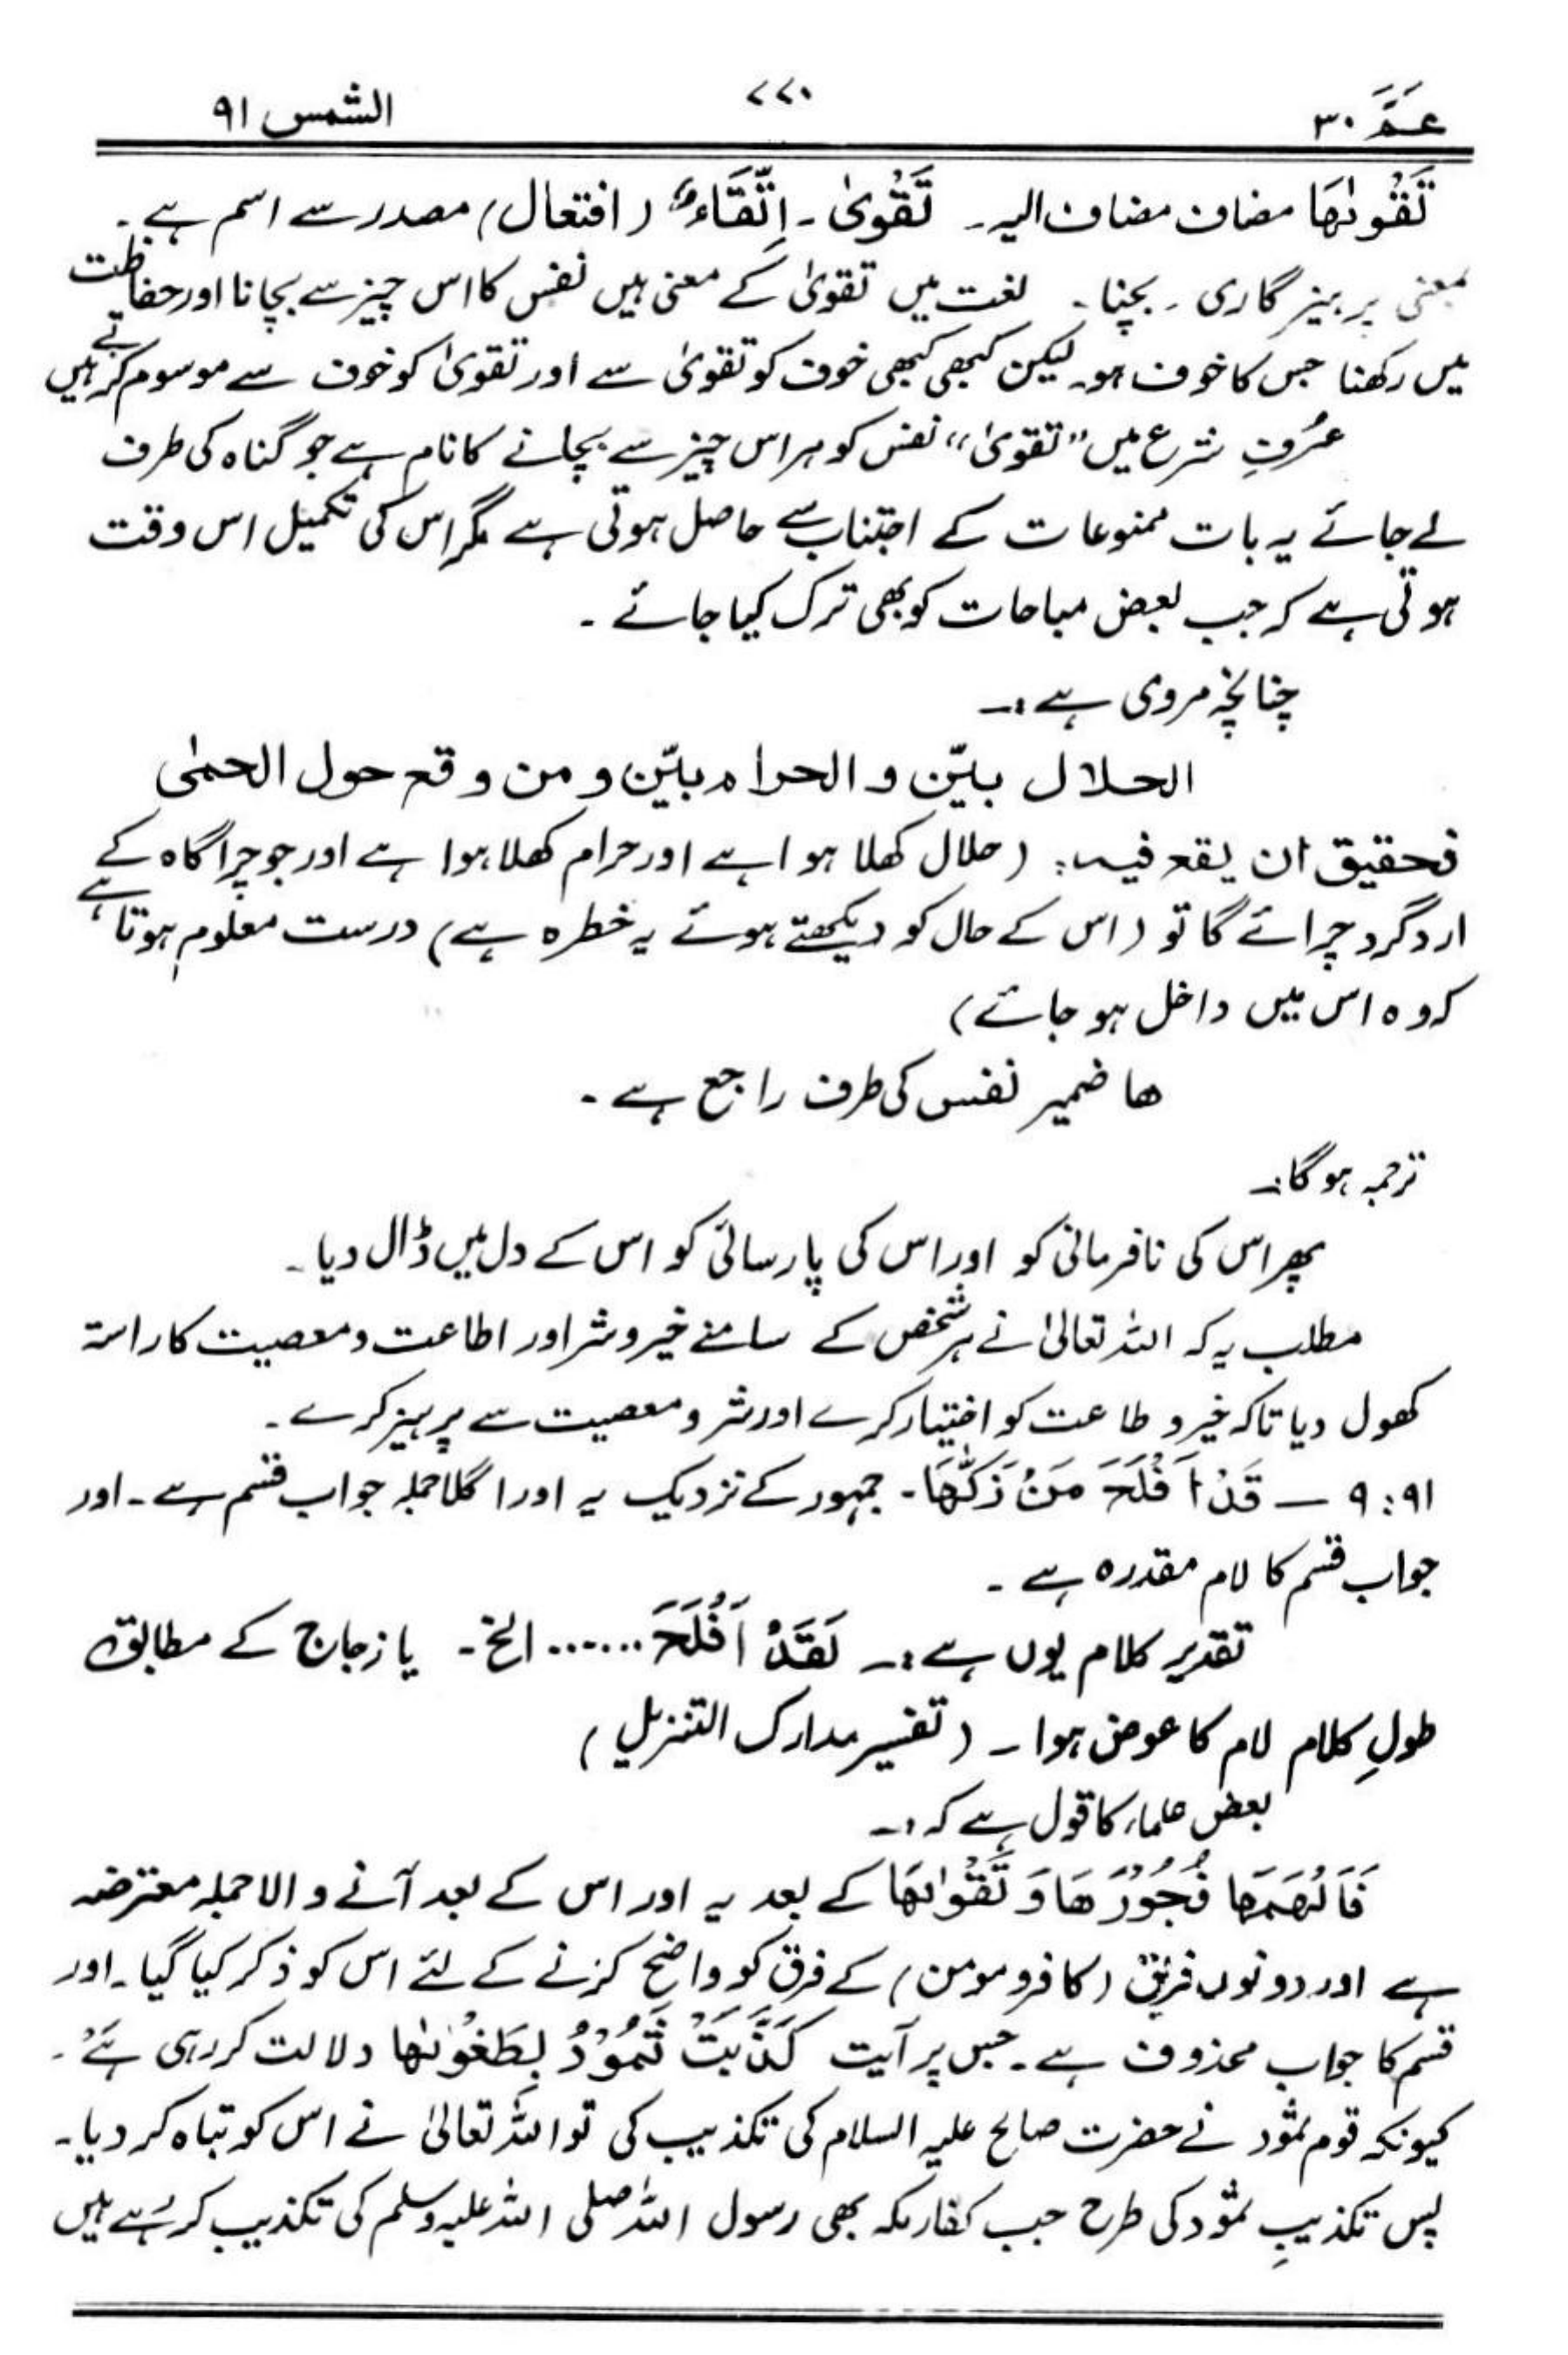 عَمَّ ۳۰ ۷۷۰ الشمس ۹۱
تَقْوٰىهَا مضاف مضاف الیہ۔ تَقْویٰ۔ اِتِّقَاءٌ (افتعال) مصدر سے اسم ہے۔
بمعنی پرہیز گاری۔ بچنا۔ لغت میں تقویٰ کے معنی ہیں نفس کا اس چیز سے بچانا اور حفاظت
میں رکھنا جس کا خوف ہو۔ لیکن کبھی کبھی خوف کو تقویٰ سے اور تقویٰ کو خوف سے موسوم کرتے ہیں
عرُفِ شرع میں ”تقویٰ“ نفس کو ہر اس چیز سے بچانے کا نام ہے جو گناہ کی طرف
لے جائے یہ بات ممنوعات کے اجتناب سے حاصل ہوتی ہے مگر اس کی تکمیل اس وقت
ہوتی ہے کہ جب بعض مباحات کو بھی ترک کیا جائے۔
چنانچہ مروی ہے:۔
الحلال بیّن و الحرام بیّن و من وقع حول الحمٰی
فحقیق ان یقع فیہ: (حلال کھلا ہوا ہے اور حرام کھلا ہوا ہے اور جو چراگاہ کے
ارد گرد چرائے گا تو (اس کے حال کو دیکھتے ہوئے یہ خطرہ ہے) درست معلوم ہوتا ہے،
کہ وہ اس میں داخل ہو جائے)
ھا ضمیر نفس کی طرف راجع ہے۔
ترجمہ ہوگا:۔
پھر اس کی نافرمانی کو اور اس کی پارسائی کو اس کے دل میں ڈال دیا۔
مطلب یہ کہ اللہ تعالیٰ نے ہر شخص کے سامنے خیر و شر اور اطاعت و معصیت کا راستہ
کھول دیا تاکہ خیر و طاعت کو اختیار کرے اور شر و معصیت سے پرہیز کرے۔
۹۱:۹ — قَدْ اَفْلَحَ مَنْ زَكّٰهَا۔ جمہور کے نزدیک یہ اور اگلا جملہ جواب قسم ہے۔ اور
جواب قسم کا لام مقدرہ ہے۔
تقدیر کلام یوں ہے:۔ لَقَدْ اَفْلَحَ ...... الخ۔ یا زجاج کے مطابق
طولِ کلام لام کا عوض ہوا۔ (تفسیر مدارک التنزیل)
بعض علماء کا قول ہے کہ:۔
فَاَلْهَمَهَا فُجُوْرَهَا وَ تَقْوٰىهَا کے بعد یہ اور اس کے بعد آنے والا جملہ معترضہ
ہے اور دونوں فریق (کافر و مومن) کے فرق کو واضح کرنے کے لئے اس کو ذکر کیا گیا۔ اور
قسم کا جواب محذوف ہے۔ جس پر آیت كَذَّبَتْ ثَمُوْدُ بِطَغْوٰىهَا دلالت کر رہی ہے۔
کیونکہ قوم ثمود نے حضرت صالح علیہ السلام کی تکذیب کی تو اللہ تعالیٰ نے اس کو تباہ کر دیا۔
پس تکذیبِ ثمود کی طرح جب کفار مکہ بھی رسول اللہ صلی اللہ علیہ وسلم کی تکذیب کر رہے ہیں